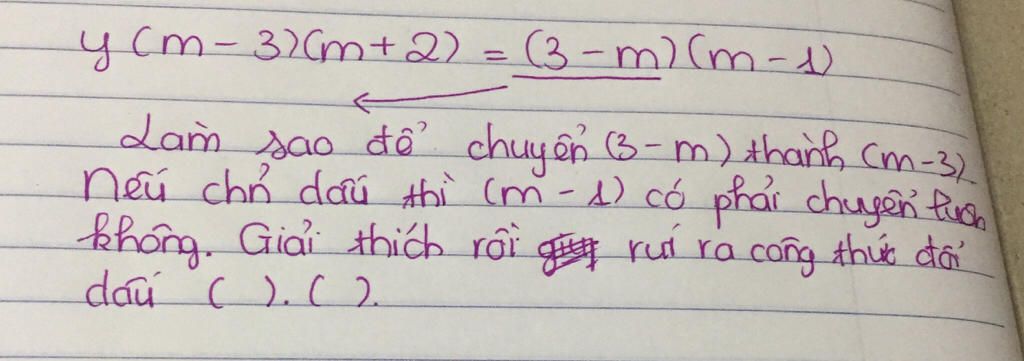 y (m - 3)(m + 2) = (3 - m)(m - 1)
Làm sao để chuyển (3 - m) thành (m - 3)
Nếu chỉ dấu thì (m - 1) có phải chuyển luôn
không. Giải thích rồi rút ra công thức đổi
dấu ( ).( ).